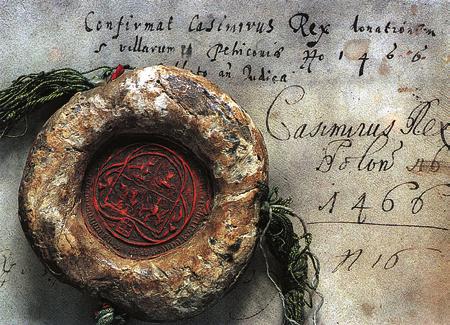 Confirmat Casimirus Rex donationem
villarum Ao 1466
Judica
Casimirus Rex
Polon
1466
N 16